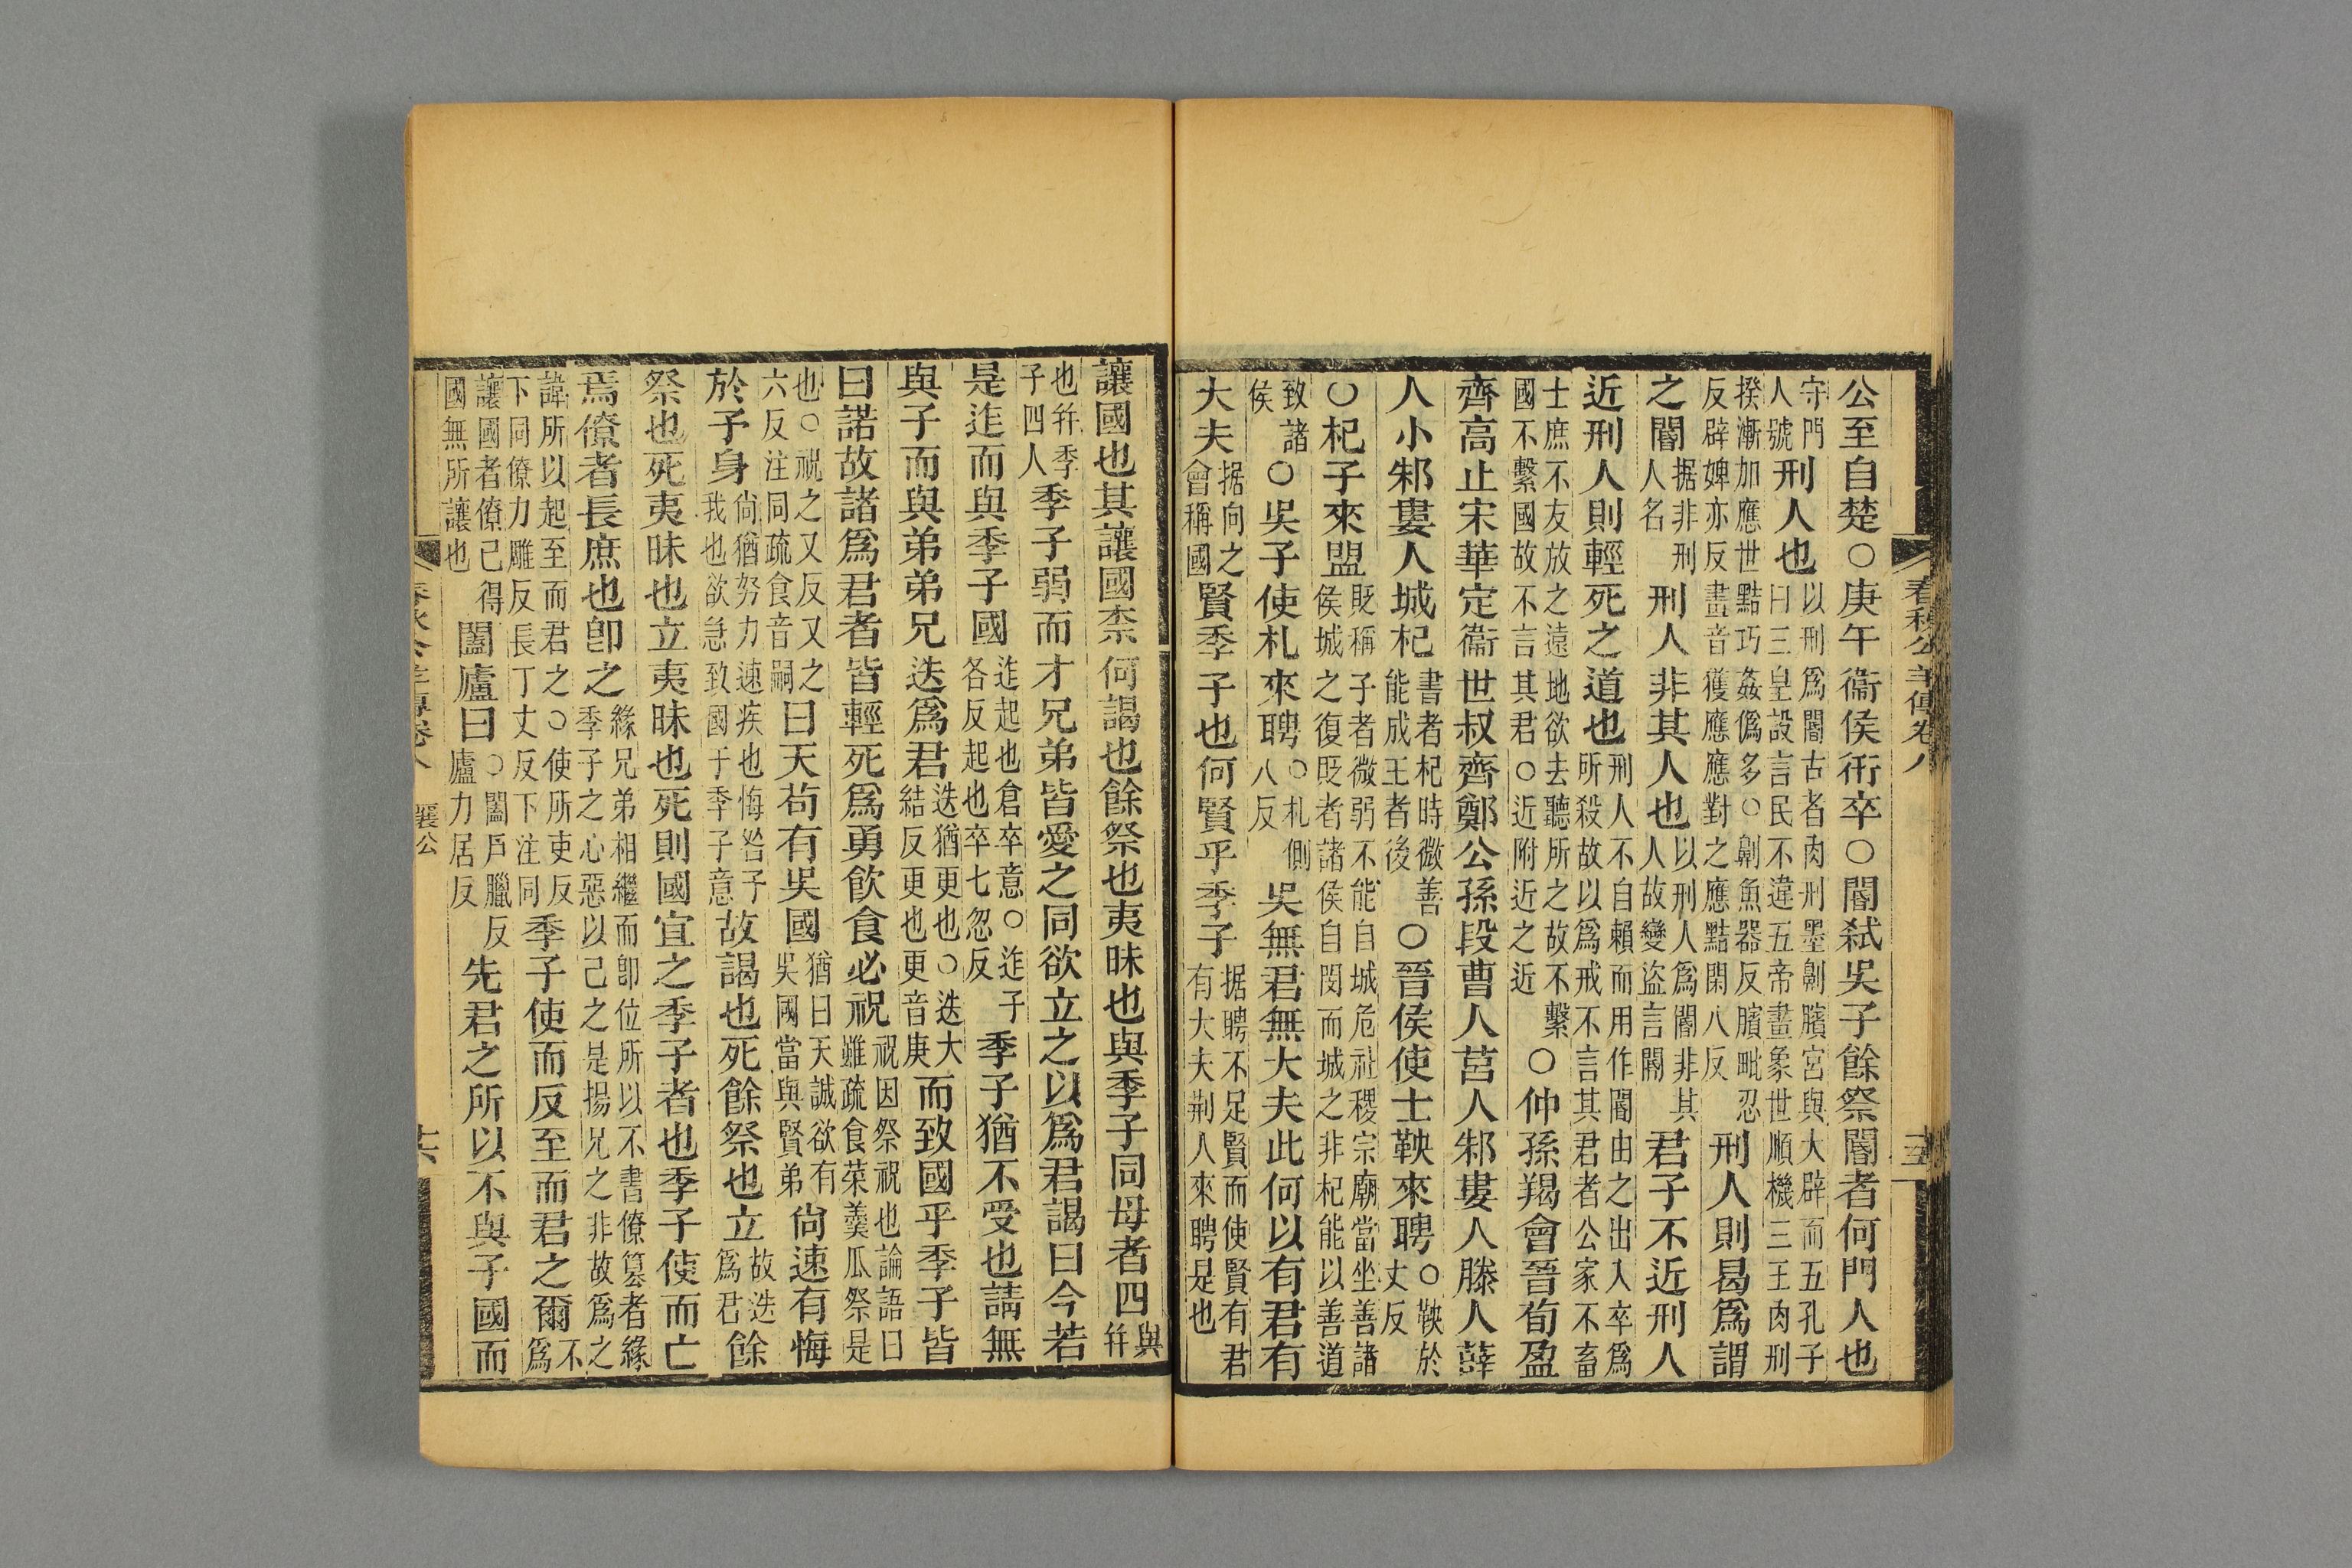 春秋公羊傳卷八 十五
公至自楚○庚午衞侯衎卒○閽弒吳子餘祭閽者何門人也
守門人號刑人也以刑爲閽古者肉刑墨劓臏宮與大辟而五孔子曰三皇設言民不違五帝畫象世順機三王肉刑
揆漸加應世黠巧姦僞多○劓魚器反臏毗忍反辟婢亦反畫音獲應應對之應黠閑八反刑人則曷爲謂
之閽据非刑人名刑人非其人也以刑人爲閽非其人故變盜言閽君子不近刑人
近刑人則輕死之道也刑人不自賴而用作閽由之出入卒爲所殺故以爲戒不言其君者公家不畜
士庶不友放之遠地欲去聽所之故不繫國不繫國故不言其君○近附近之近○仲孫羯會晉荀盈
齊高止宋華定衞世叔齊鄭公孫段曹人莒人邾婁人滕人薛
人小邾婁人城杞書者杞時微善能成王者後○晉侯使士鞅來聘○鞅於丈反
○杞子來盟貶稱子者微弱不能自城危社稷宗廟當坐善諸侯城之復貶者諸侯自閔而城之非杞能以善道
致諸侯○吳子使札來聘○札側八反吳無君無大夫此何以有君有
大夫据向之會稱國賢季子也何賢乎季子据聘不足賢而使賢有君有大夫荆人來聘是也
讓國也其讓國柰何謁也餘祭也夷昧也與季子同母者四與幷
也幷季子四人季子弱而才兄弟皆愛之同欲立之以爲君謁曰今若
是迮而與季子國迮起也倉卒意○迮子各反起也卒七忽反季子猶不受也請無
與子而與弟弟兄迭爲君迭猶更也○迭大結反更也更音庚而致國乎季子皆
曰諾故諸爲君者皆輕死爲勇飮食必祝祝因祭祝也論語曰雖疏食菜羹瓜祭是
也○祝之又反又之六反注同疏食音嗣曰天苟有吳國猶曰天誠欲有吳國當與賢弟尙速有悔
於予身尙猶努力速疾也悔咎予我也欲急致國于季子子意故謁也死餘祭也立故迭爲君餘
祭也死夷昧也立夷昧也死則國宜之季子者也季子使而亡
焉僚者長庶也卽之緣兄弟相繼而卽位所以不書僚篡者緣季子之心惡以己之是揚兄之非故爲之
諱所以起至而君之○使所吏反下同僚力雕反長丁丈反下注同季子使而反至而君之爾不爲
讓國者僚己得國無所讓也闔廬曰○闔戶臘反廬力居反先君之所以不與子國而
春秋公羊傳卷八 襄公 十六